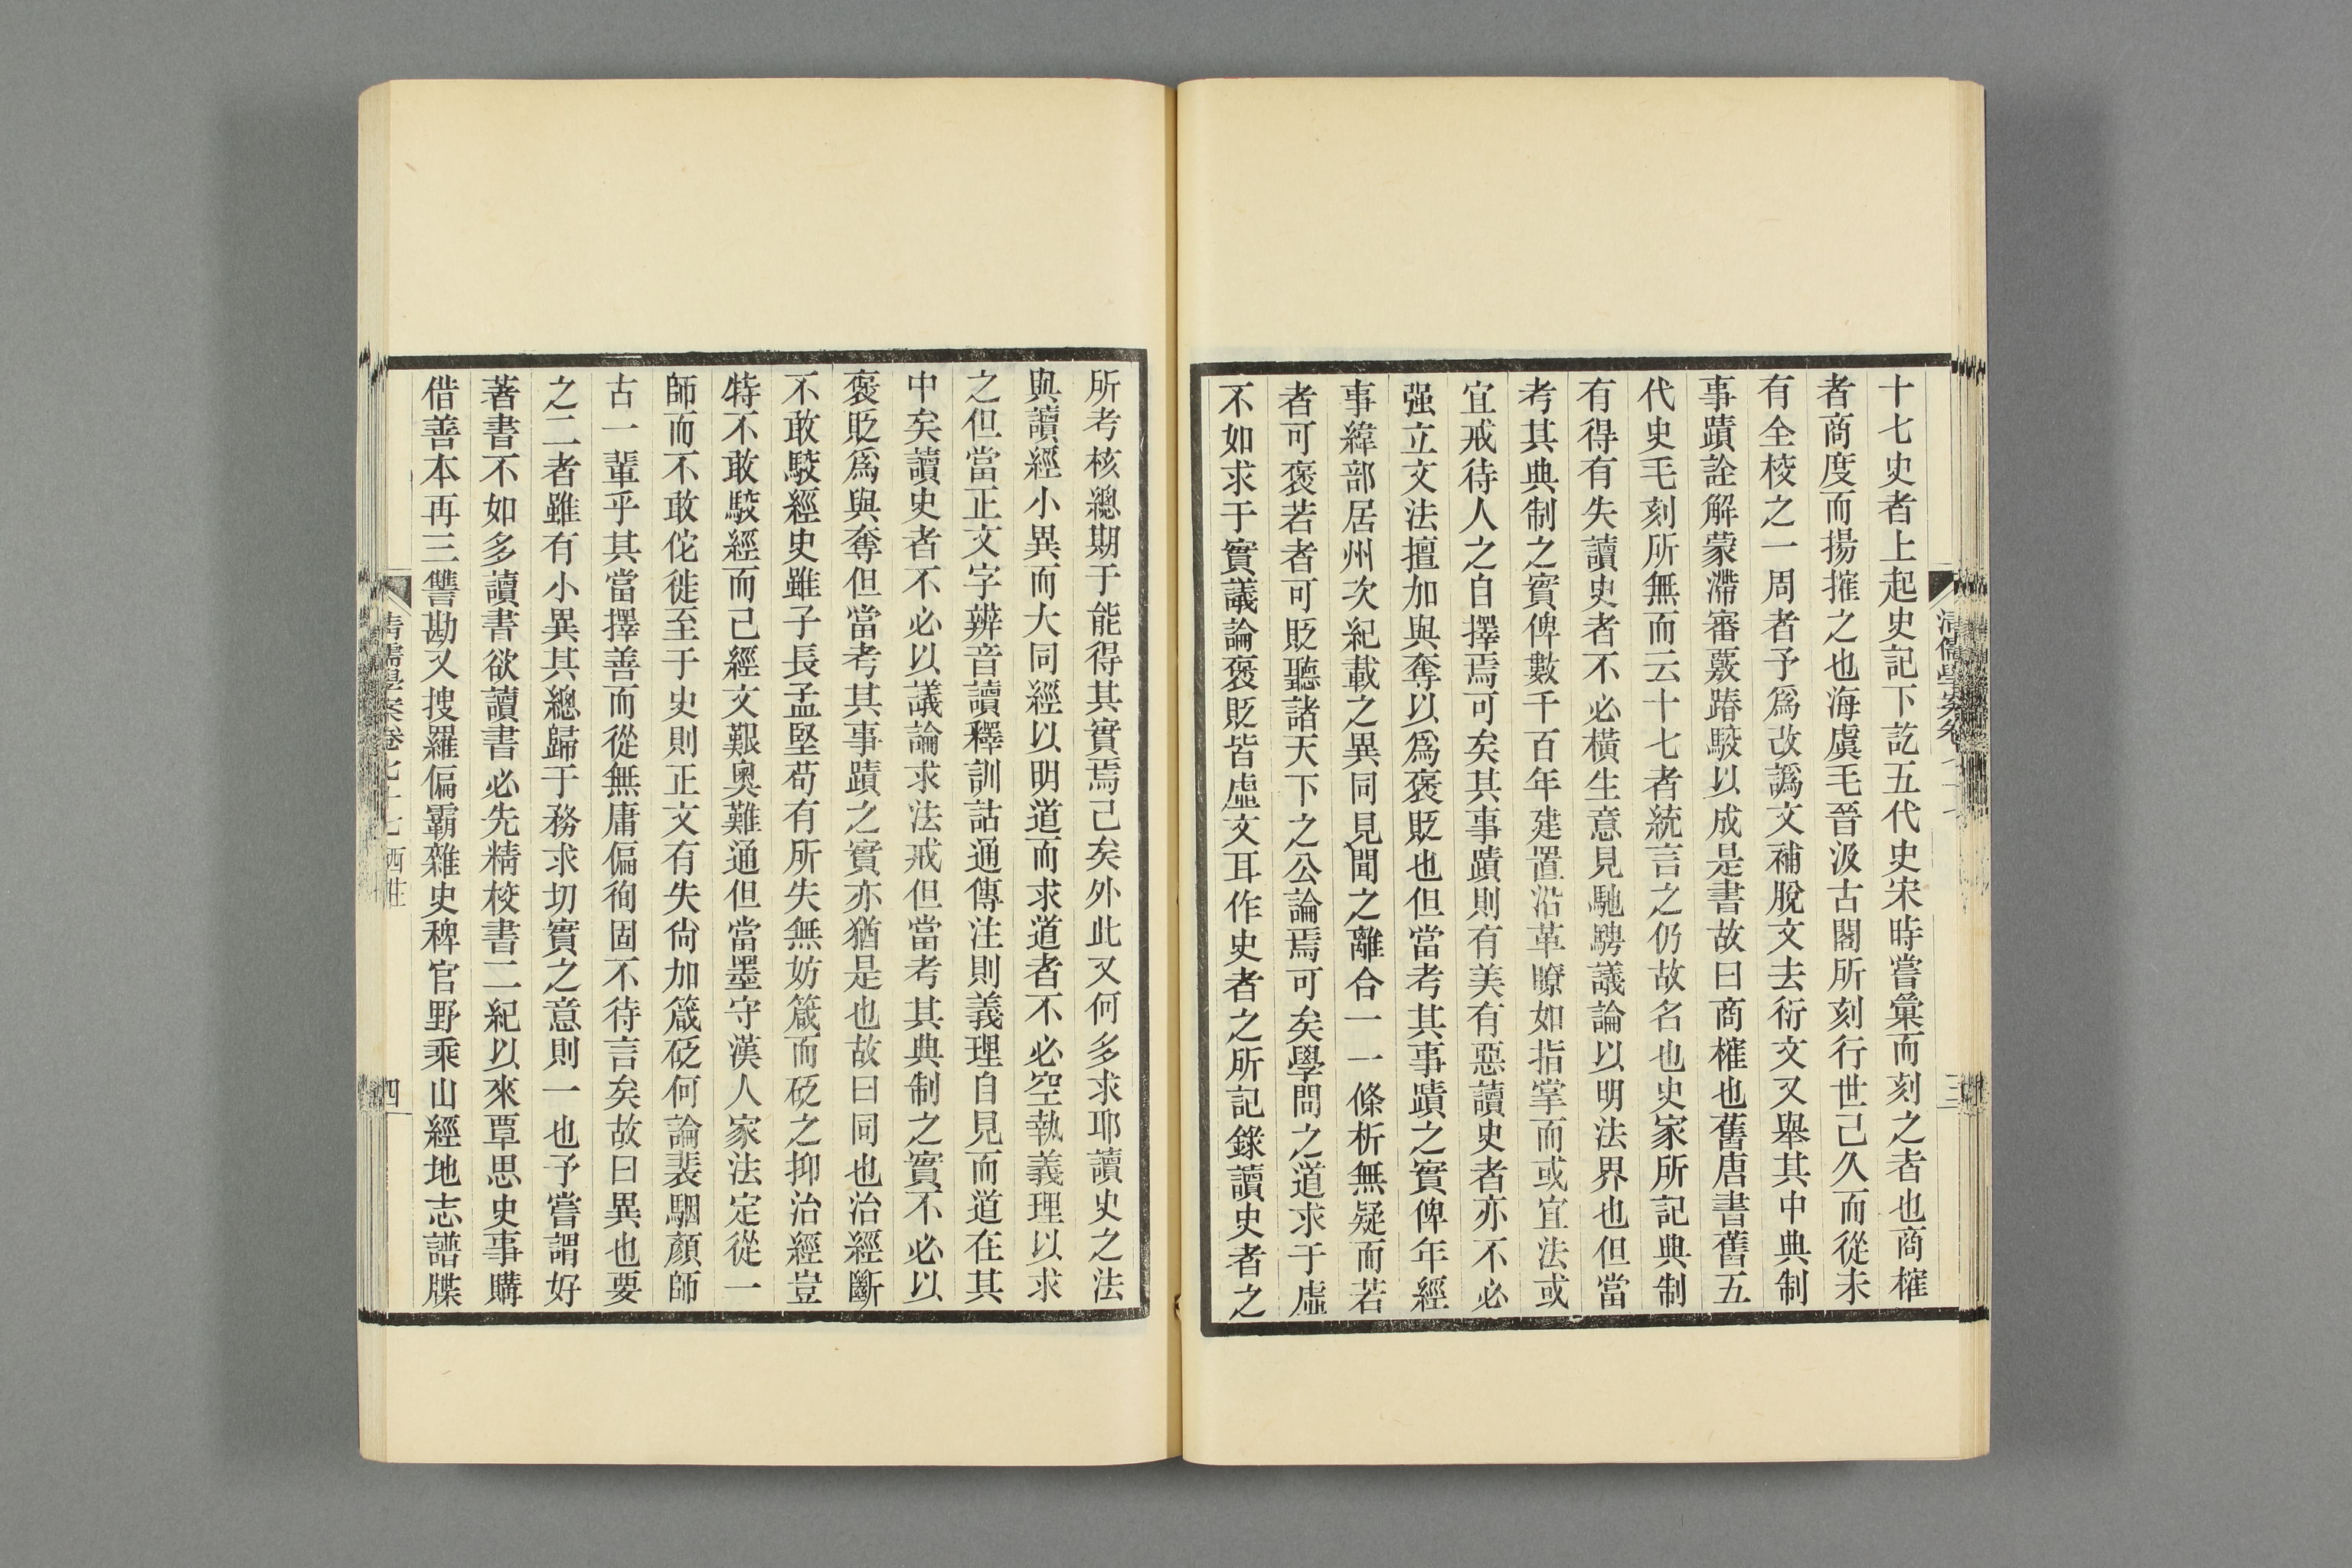 十七史者上起史記下訖五代史宋時嘗彙而刻之者也商榷
者商度而揚搉之也海虞毛晉汲古閣所刻行世已久而從未
有全校之一周者予爲改譌文補脫文去衍文又舉其中典制
事蹟詮解蒙滯審覈踳駮以成是書故曰商榷也舊唐書舊五
代史毛刻所無而云十七者統言之仍故名也史家所記典制
有得有失讀史者不必橫生意見馳騁議論以明法界也但當
考其典制之實俾數千百年建置沿革瞭如指掌而或宜法或
宜戒待人之自擇焉可矣其事蹟則有美有惡讀史者亦不必
强立文法擅加與奪以爲褒貶也但當考其事蹟之實俾年經
事緯部居州次紀載之異同見聞之離合一一條析無疑而若
者可褒若者可貶聽諸天下之公論焉可矣學問之道求于虛
不如求于實議論褒貶皆虛文耳作史者之所記錄讀史者之
所考核總期于能得其實焉已矣外此又何多求耶讀史之法
與讀經小異而大同經以明道而求道者不必空執義理以求
之但當正文字辨音讀釋訓詁通傳注則義理自見而道在其
中矣讀史者不必以議論求法戒但當考其典制之實不必以
褒貶爲與奪但當考其事蹟之實亦猶是也故曰同也治經斷
不敢駮經史雖子長孟堅苟有所失無妨箴而砭之抑治經豈
特不敢駮經而已經文艱奧難通但當墨守漢人家法定從一
師而不敢佗徙至于史則正文有失尙加箴砭何論裴駰顏師
古一輩乎其當擇善而從無庸偏徇固不待言矣故曰異也要
之二者雖有小異其總歸于務求切實之意則一也予嘗謂好
著書不如多讀書欲讀書必先精校書二紀以來覃思史事購
借善本再三讐勘又搜羅偏霸雜史稗官野乘山經地志譜牒
清儒學案卷七十七 西莊
四